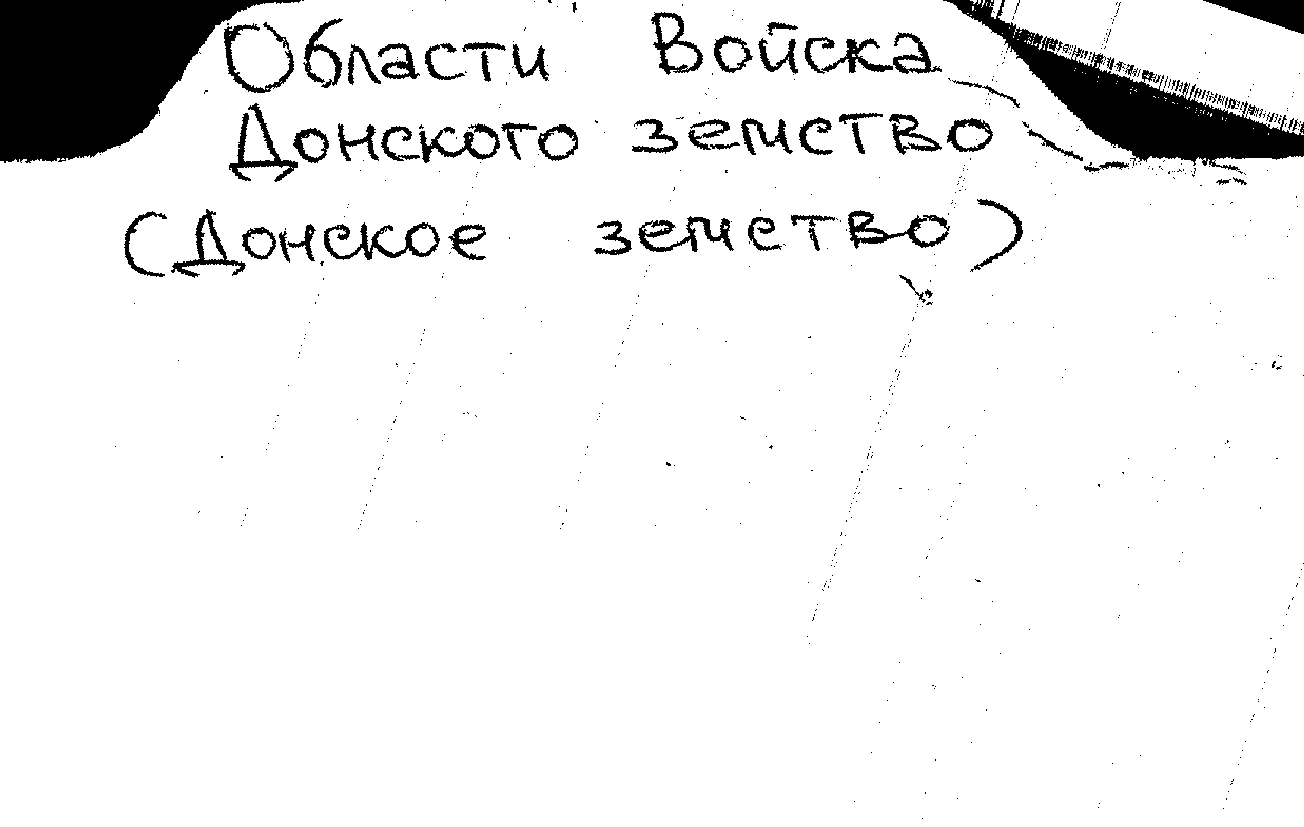 Области Войска
Донского земство
(Донское земство)